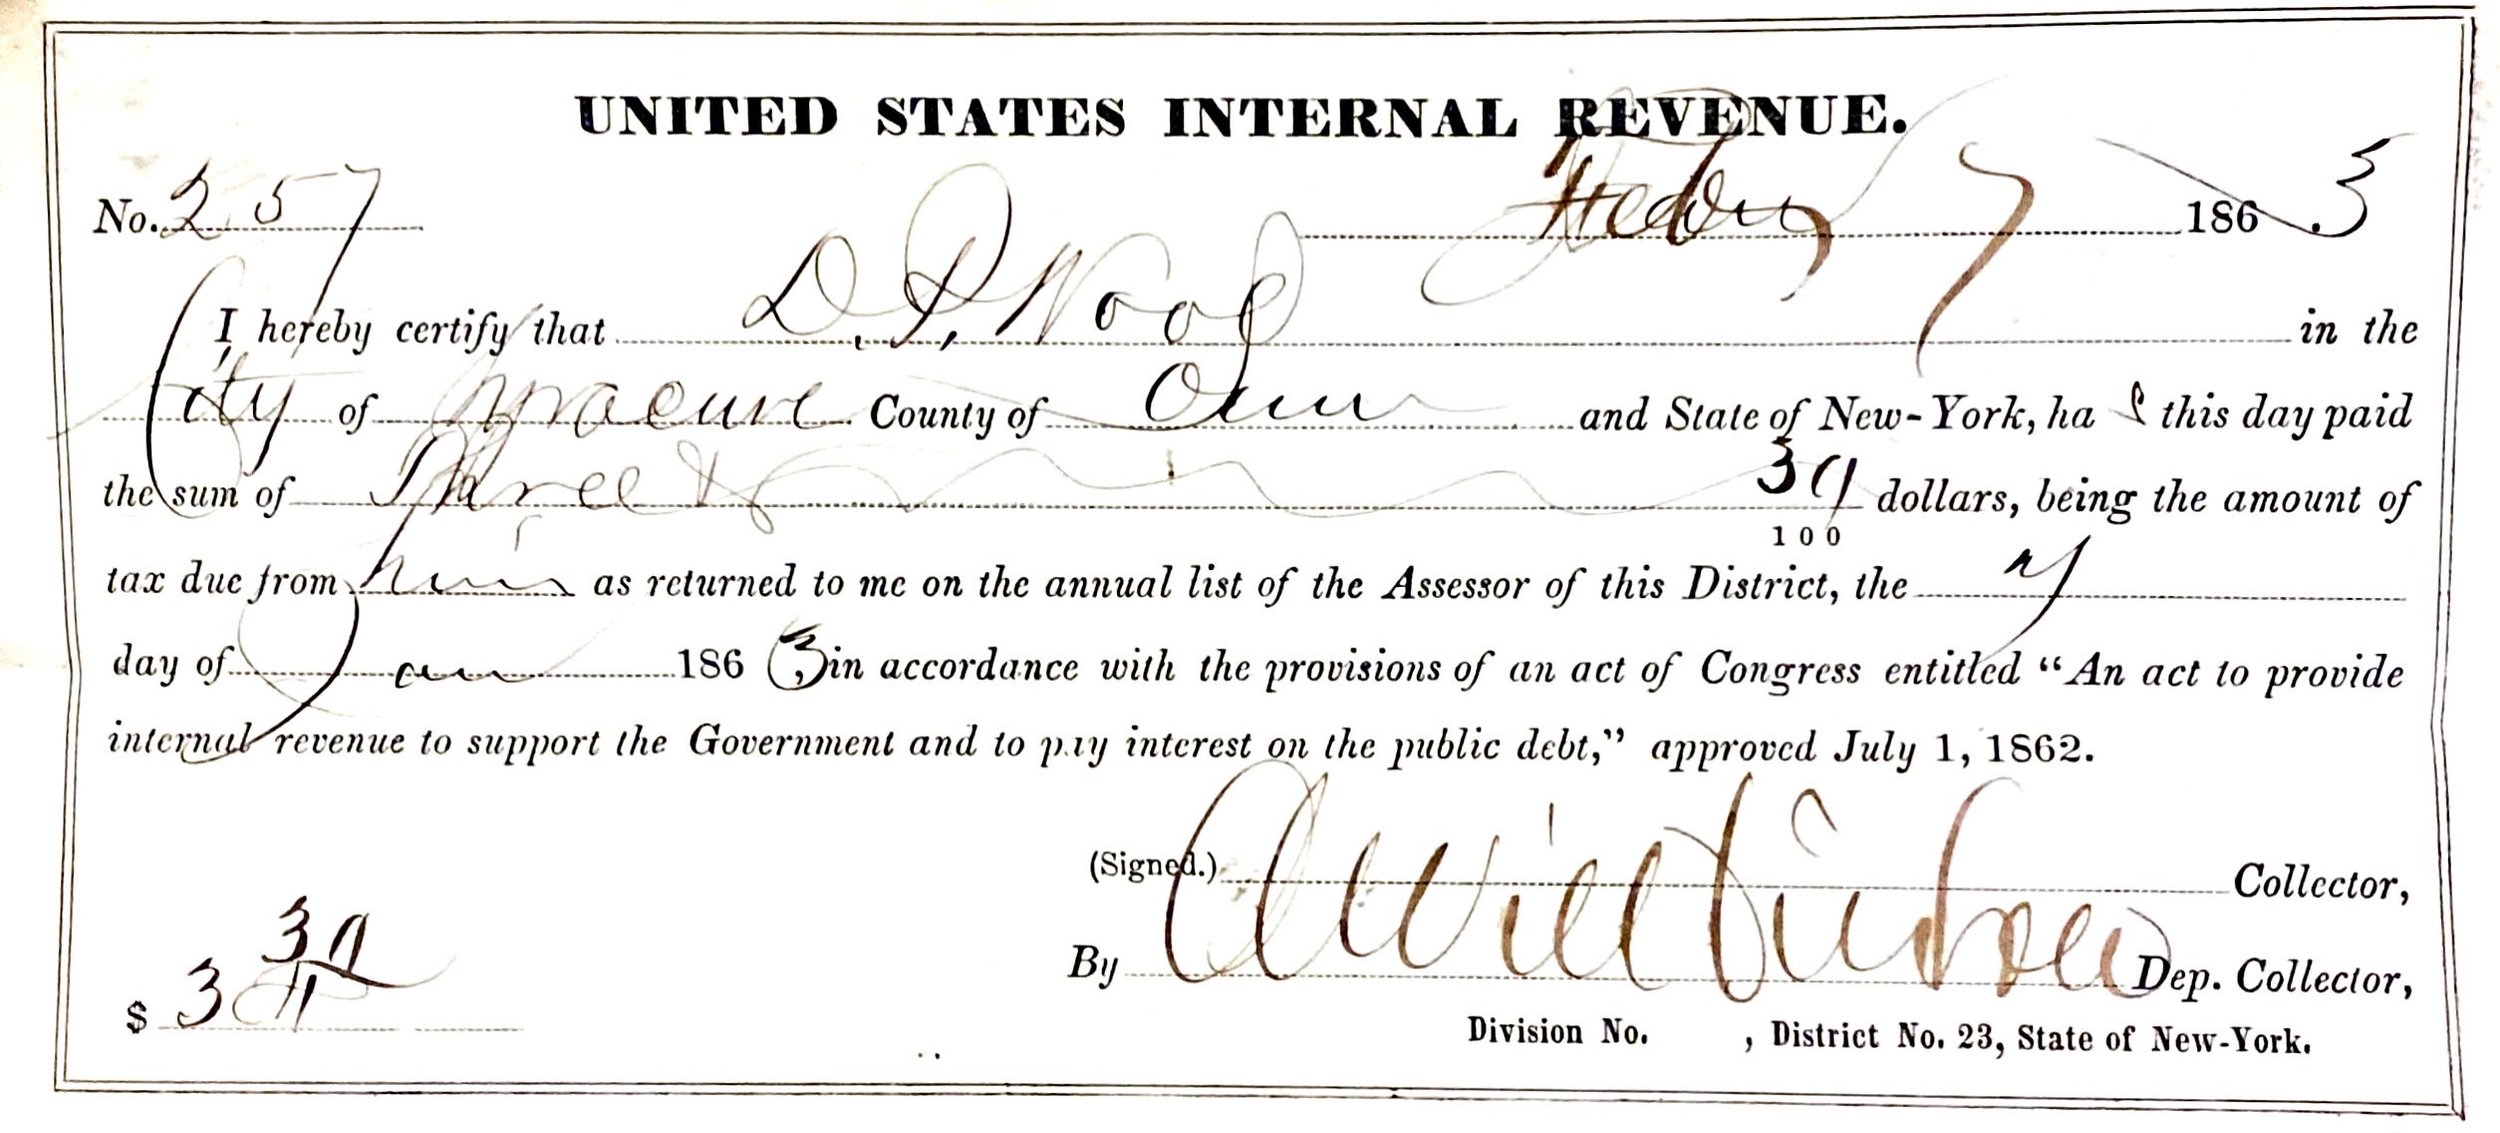 UNITED STATES INTERNAL REVENUE.
No. 257 Feby 7 1863
I hereby certify that D. P. Wood in the
City of Syracuse County of Onn and State of New-York, has this day paid
the sum of Three & 39/100 dollars, being the amount of
tax due from him as returned to me on the annual list of the Assessor of this District, the
day of Jan 1863, in accordance with the provisions of an act of Congress entitled “An act to provide
internal revenue to support the Government and to pay interest on the public debt,” approved July 1, 1862.
(Signed.) Collector,
By Dep. Collector,
$ 3 39
Division No. , District No. 23, State of New-York.